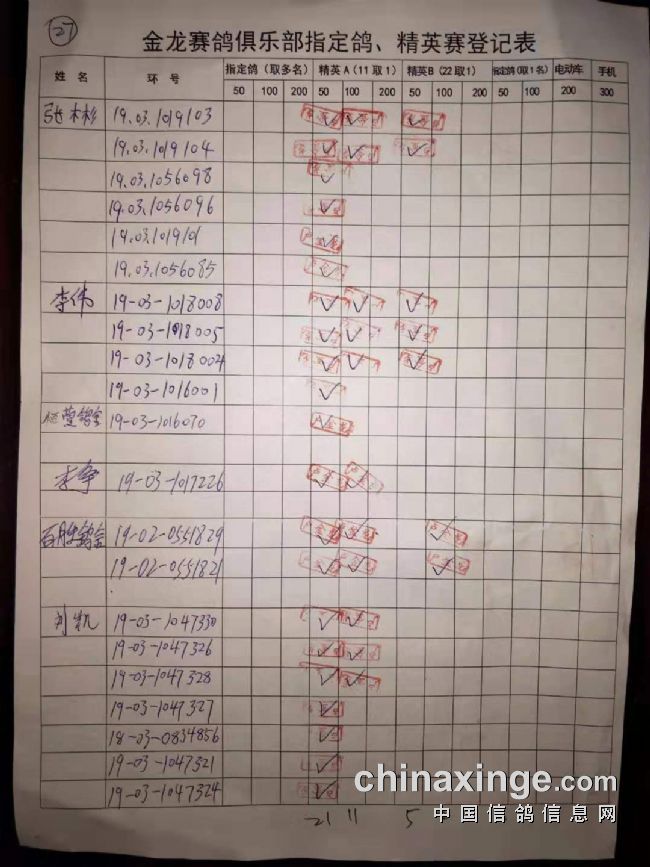 27
金龙赛鸽俱乐部指定鸽、精英赛登记表
姓名 环号 指定鸽(取多名) 精英A(11取1) 精英B(22取1) 指定鸽(取1名) 电动车 手机
50 100 200 50 100 200 50 100 200 50 100 200 300
张木杉 19.03.1019103 ✓ ✓ ✓
19.03.1019104 ✓ ✓ ✓
19.03.1056098 ✓
19.03.1056096 ✓
19.03.101910 ✓
19.03.1056085 ✓
李伟 19-03-1018008 ✓ ✓ ✓
19-03-1018005 ✓ ✓ ✓
19-03-1018004 ✓ ✓ ✓
19-03-1016001 ✓
鸽舍 19-03-1016070 ✓
李争 19-03-1017226 ✓ ✓
百胜鸽舍 19-02-0551829 ✓ ✓ ✓
19-02-0551821 ✓ ✓ ✓
刘凯 19-03-1047330 ✓ ✓
19-03-1047326 ✓ ✓
19-03-1047328 ✓ ✓
19-03-1047327 ✓
18-03-0834856 ✓
19-03-1047321 ✓
19-03-1047324 ✓
21 11 5
chinaxinge.com
中国信鸽信息网